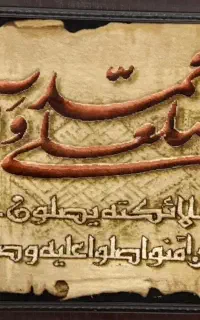 محمد و
صل على
لائكته يصلون
آمنوا صلوا عليه و